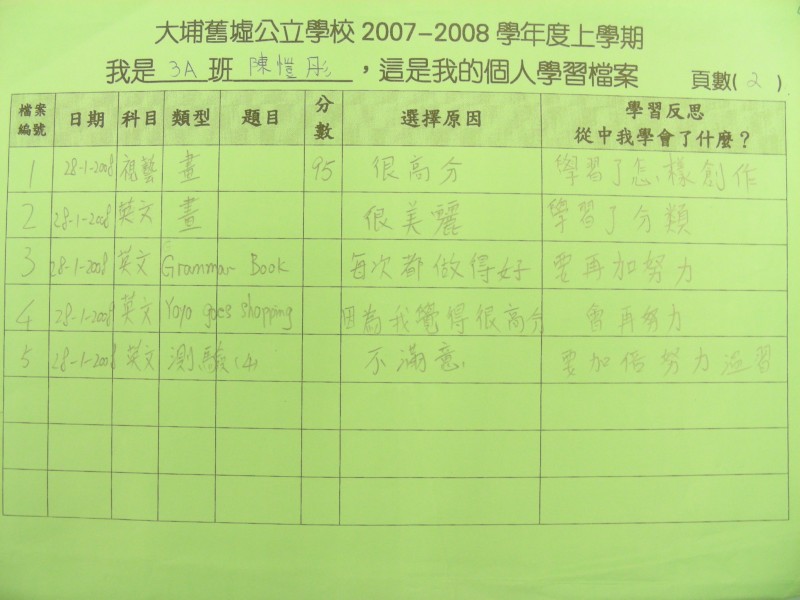 大埔舊墟公立學校 2007-2008 學年度上學期
我是 3A 班 陳愷彤 ，這是我的個人學習檔案 頁數( 2 )
檔案編號 日期 科目 類型 題目 分數 選擇原因 學習反思 從中我學會了什麼？
1 28-1-2008 視藝 畫 95 很高分 學習了怎樣創作
2 28-1-2008 英文 畫 很美麗 學習了分類
3 28-1-2008 英文 Grammar Book 每次都做得好 要再加努力
4 28-1-2008 英文 Yoyo goes shopping 因為我覺得很高分 會再努力
5 28-1-2008 英文 測驗(4) 不滿意 要加倍努力溫習